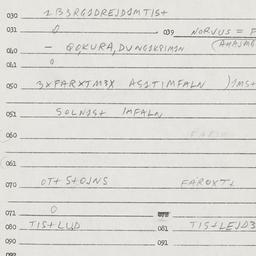 030 1B3RG1DREJD1MTIS+
031 0 039 NORVUS = F
040 - QQKURA, DVNG1KRIMIN (AHAJMG
041 0
050 3XFARXTM3X AS1TIMFALN )1MS+
051 SOLN1S+ IMFALN
060
061
070 OT+ S+OJNS FAROXT+
071 0 077
080 TIS+LUD 081 TIS+LEJD3
090 091
092